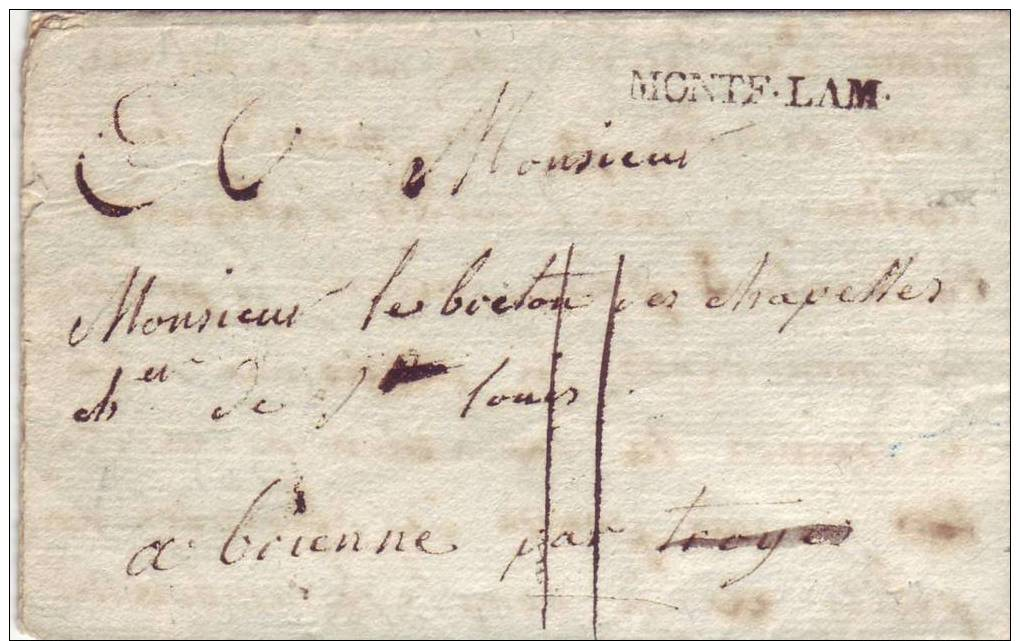 MONTF·LAM·
A Monsieur
Monsieur le breton des chapelles
ch.er de st louis
a brienne par troyes